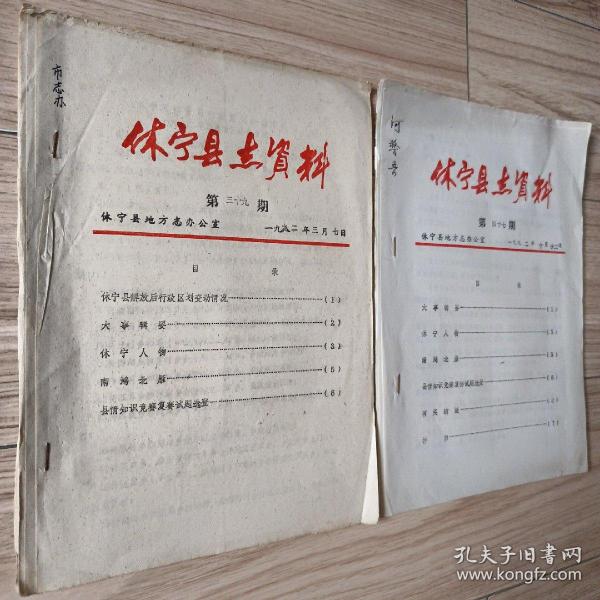 市志办
休宁县志資料
第 三十九 期
休宁县地方志办公室
一九八二年三月七日
目 录
休宁县解放后行政区划变动情况……(1)
大事辑要……(2)
休宁人物……(3)
南鸿北雁……(5)
县情知识竞赛复赛试题选登……(6)
休宁县志資料
第 四十七 期
休宁县地方志办公室
目 录
大事辑要
休宁人物
南鸿北雁
县情知识竞赛复赛试题选登
孔夫子旧书网
www.kongfz.com